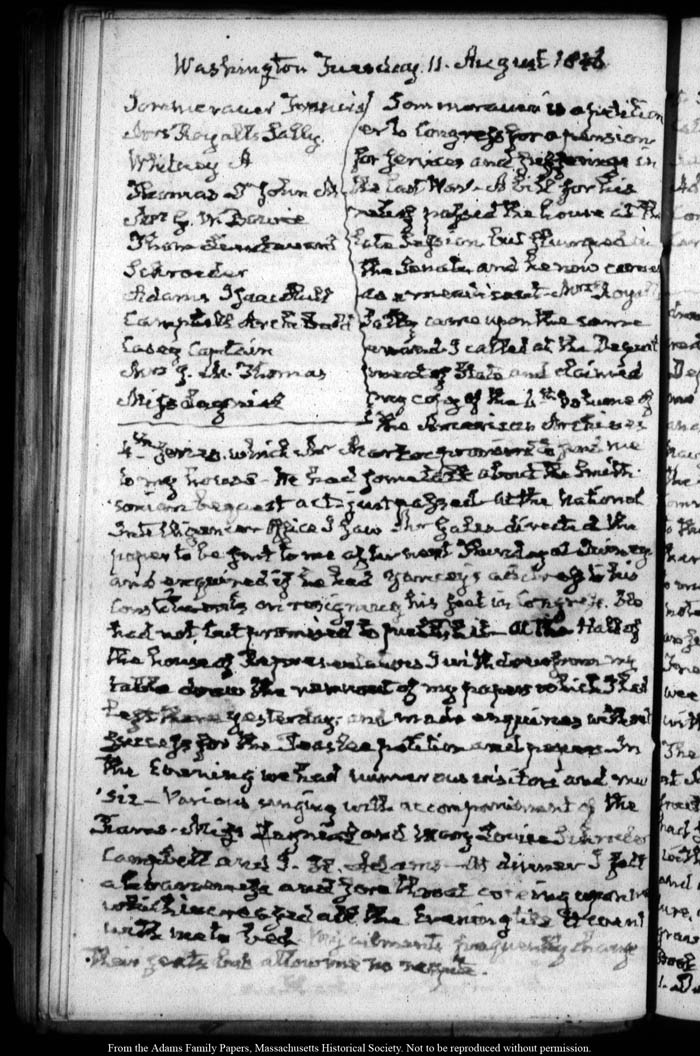 Washington Tuesday 11. August 1846
Sommerauer Francis
Mrs Royall & Sally
Whitney A
Thomas Dr John M.
Mrs G. W.
Thom
Schroeder
Adams Isaac Hull
Campbell Archibald
Casey Captain
Mrs J. M. Thomas
Miss
Sommerauer is a petition
er to Congress for a pension
for services and sufferings in
the last War. A bill for his
relief passed the house at the
late Session but in
the Senate, and he now comes
as a mendicant. Mrs Royall
Sally came upon the same
errand. I called at the Depart
ment of State and claimed
my copy of the 6th Volume of
the American Archives
4th Series, which Mr Markoe promised to send me
to my house. We had some talk about the Smith-
sonian bequest act, just passed. At the National
Intelligencer Office I saw Mr Gales directed the
paper to be sent to me after next Thursday at Quincy
and enquired if he had Yancey's address to his
Constituents on resigning his seat in Congress. He
had not, but promised to publish it. At the Hall of
the house of Representatives I withdrew from my
table draw the remnant of my papers which I had
left there yesterday; and made enquiries without
success for the petition and papers. In
the Evening we had numerous visitors and mu
sic — Various singing with accompaniment of the
Piano. Miss and Mary Louisa Schroeder
Campbell and I. H. Adams. At dinner I felt
a hoarseness and sore throat coming upon me
which increased all the Evening till it went
with me to bed. My ailments frequently change
their seats but allow me no respite.
From the Adams Family Papers, Massachusetts Historical Society. Not to be reproduced without permission.